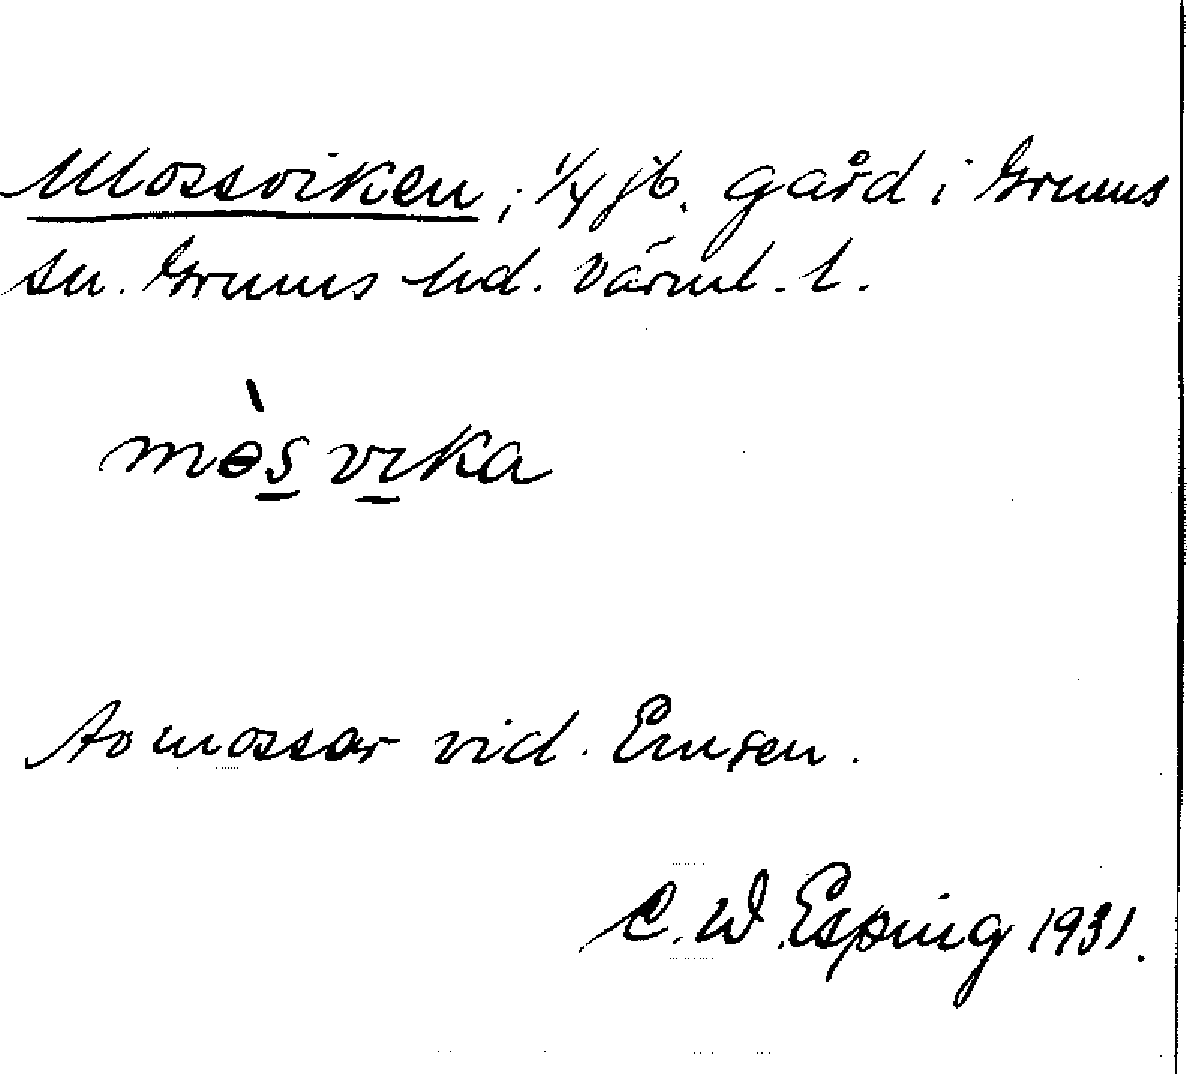 Mossviken, ¼ jb. gård i Grums
sn. Grums hd. Värml. l.
mɵ̀s vika
Av mossar vid Emsen.
C. W. Esping 1931.